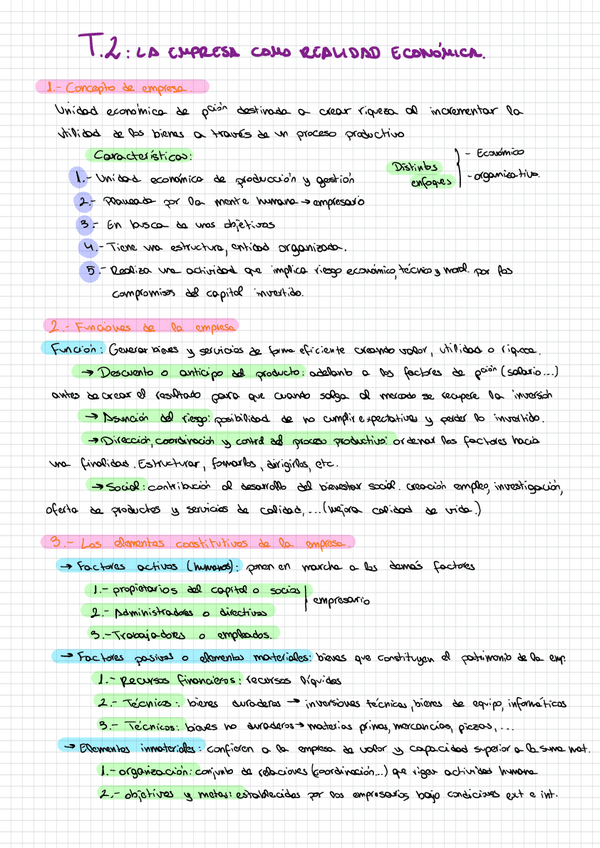 T.2: LA EMPRESA COMO REALIDAD ECONÓMICA.
1.- Concepto de empresa.
Unidad económica de pción destinada a crear riqueza al incrementar la
utilidad de los bienes a través de un proceso productivo
Características:
1.- Unidad económica de producción y gestión
2.- Planeada por la mente humana → empresario
3.- En busca de unos objetivos
4.- Tiene una estructura, entidad organizada.
5.- Realiza una actividad que implica riesgo económico, técnico y moral por los
compromisos del capital invertido.
Distintos
enfoques
- Económico
- organicativo
2.- Funciones de la empresa
Función: Generar bienes y servicios de forma eficiente creando valor, utilidad o riqueza.
→ Descuento o anticipo del producto: adelanto a los factores de pción (salario...)
antes de crear el resultado para que cuando salga al mercado se recupere la inversión
→ Asunción del riesgo: posibilidad de no cumplir expectativas y perder lo invertido.
→ Dirección, coordinación y control del proceso productivo: ordenar los factores hacia
una finalidad. Estructurar, formarlos, dirigirlos, etc.
→ Social: contribución al desarrollo del bienestar social. creación empleo, investigación,
oferta de productos y servicios de calidad,... (mejora calidad de vida.)
3.- Los elementos constitutivos de la empresa.
→ Factores activos (humanos): ponen en marcha a los demás factores
1.- propietarios del capital o socios
2.- Administradores o directivos
empresario
3.- Trabajadores o empleados.
→ Factores pasivos o elementos materiales: bienes que constituyen el patrimonio de la emp.
1.- Recursos financieros: recursos líquidos
2.- Técnicos: bienes duraderos → inversiones técnicas, bienes de equipo, informáticos
3.- Técnicos: bienes no duraderos → materias primas, mercancías, piezas,...
→ Elementos inmateriales: confieren a la empresa de valor y capacidad superior a la suma mat.
1.- organización: conjunto de relaciones (coordinación...) que rigen actividad humana
2.- objetivos y metas: establecidas por los empresarios bajo condiciones ext e int.